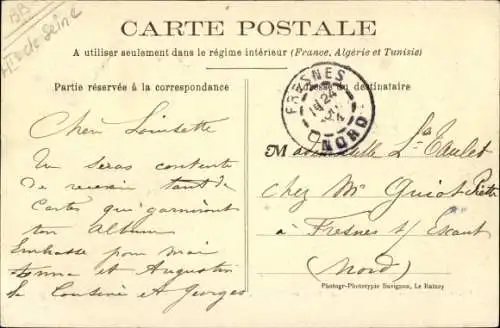 BB
Hts de Seine
CARTE POSTALE
A utiliser seulement dans le régime intérieur (France, Algérie et Tunisie)
Partie réservée à la correspondance
Adresse du destinataire
FRESNES
24
NORD
Cher Louisette
Tu seras contente
de recevoir tant de
Cartes qui garniront
ton Album
Embrasse pour moi
et Augustin
Georges
Mademoiselle Taulet
chez Mr Guiot
à Fresnes s/ Escaut
(Nord)
Photogr-Phototypie Bavignon, Le Raincy